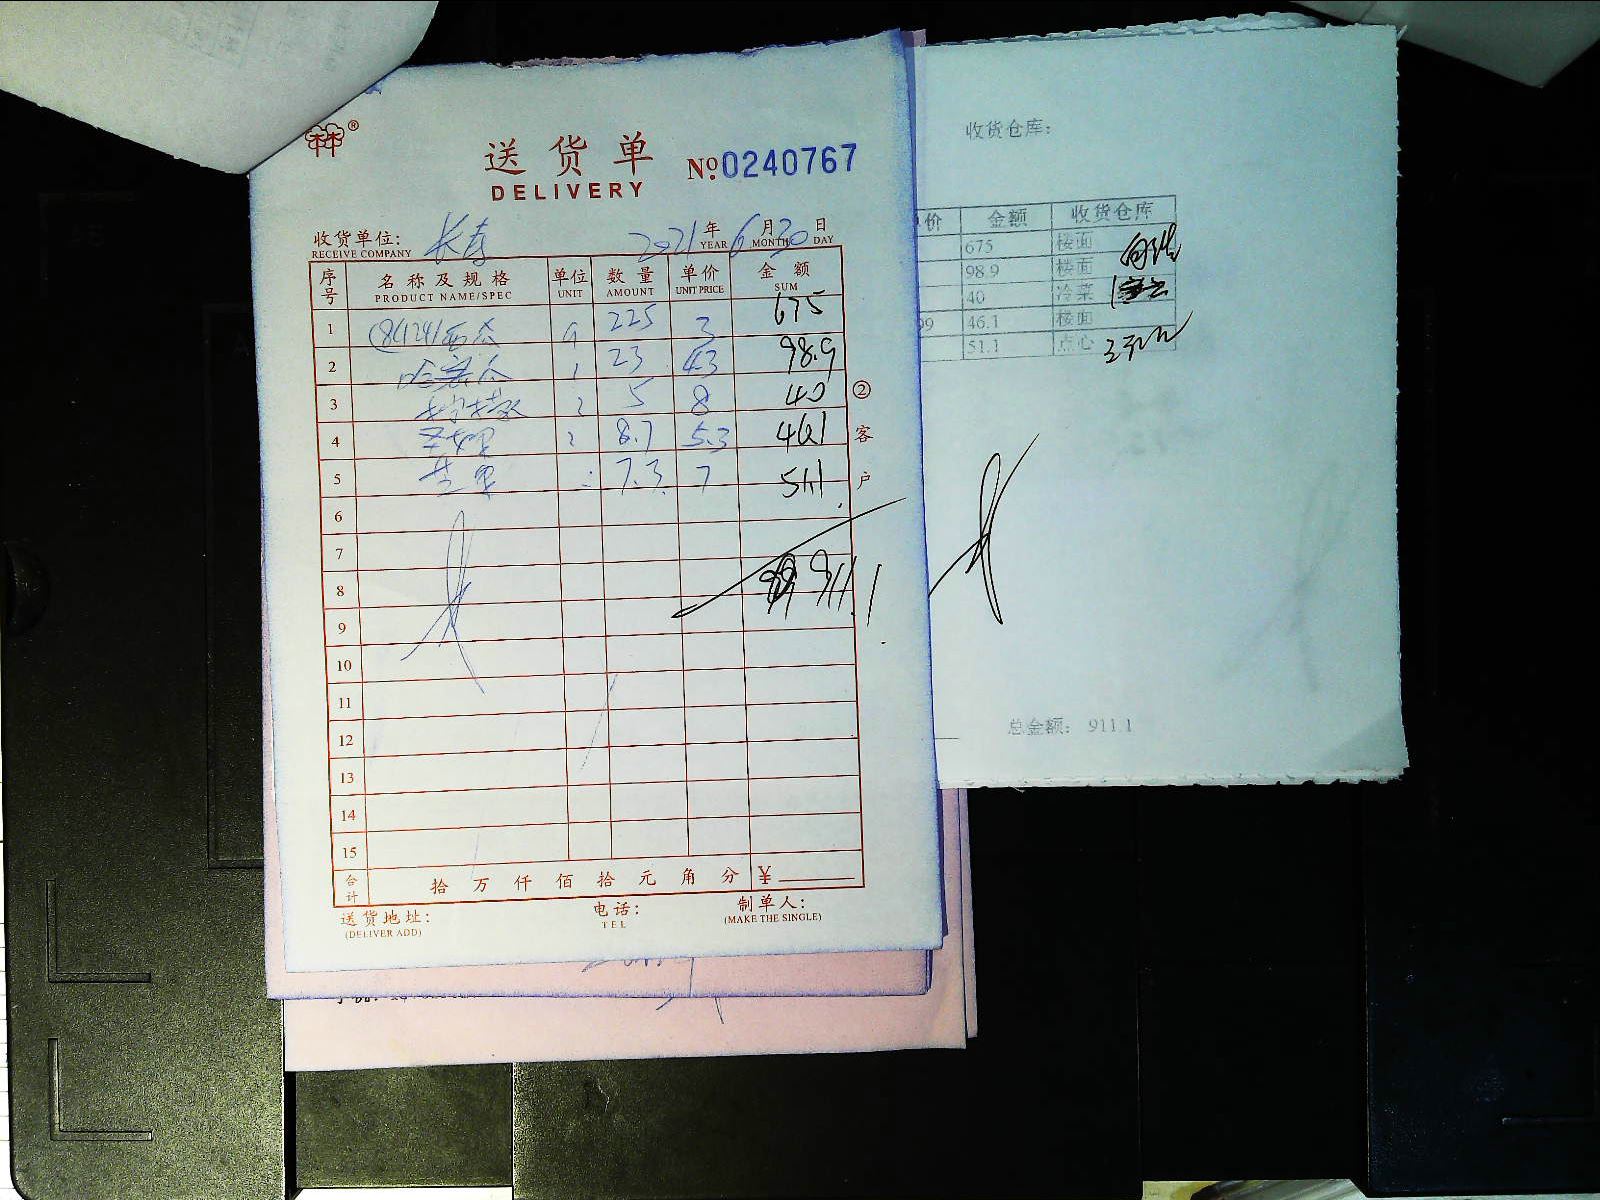 送货单 №0240767
DELIVERY
收货单位: 长寿 2021年 6月 30日
RECEIVE COMPANY YEAR MONTH DAY
序号 名称及规格 单位 数量 单价 金额
PRODUCT NAME/SPEC UNIT AMOUNT UNIT PRICE SUM
1 (8424)西瓜 225 3 675
2 哈密瓜 23 4.3 98.9
3 柠檬 5 8 40
4 圣女果 8.7 5.3 46.1
5 芒果 7.3 7 51.1
6
7
8 911.1
9
10
11
12
13
14
15
合计 拾 万 仟 佰 拾 元 角 分 ¥
送货地址: 电话: 制单人:
(DELIVER ADD) TEL (MAKE THE SINGLE)
②客户
收货仓库:
价 金额 收货仓库
675 楼面
98.9 楼面
40 冷菜
99 46.1 楼面
51.1 点心
总金额: 911.1